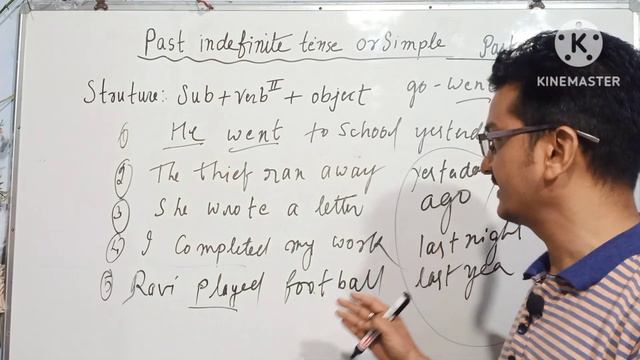 Past indefinite tense or Simple Past
KINEMASTER
Struture: Sub + verb II + object go - went
① He went to School yesterd
② The thief ran away yesterda
③ She wrote a letter ago
④ I Completed my work last night
⑤ Ravi played football last yea